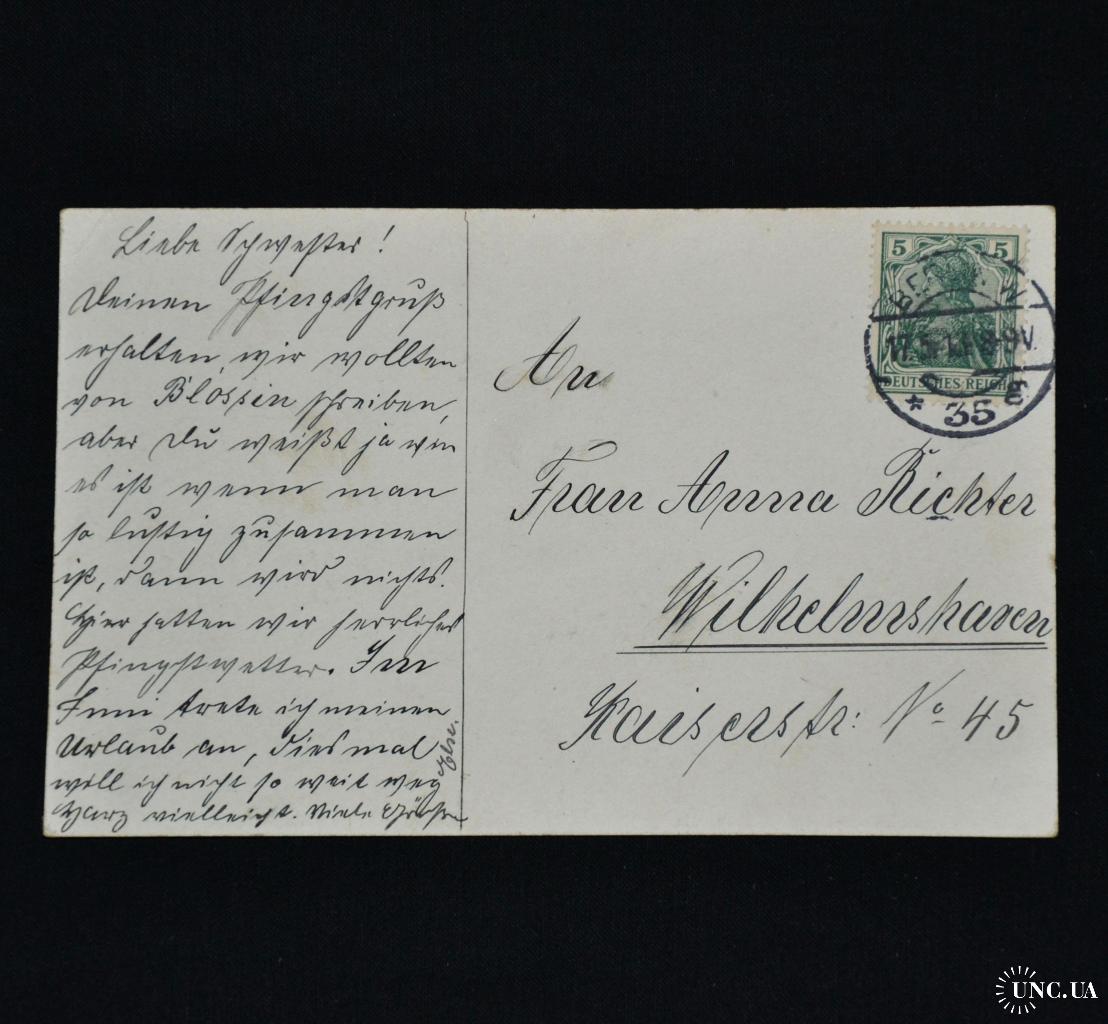 Liebe Schwester!
Deinen Pfingstgruß
erhalten, wir wollten
von Blossin schreiben,
aber Du weißt ja wie
es ist wenn man
so lustig zusammen
ist, dann wird nichts.
Hier hatten wir herrliches
Pfingstwetter. Im
Juni trete ich meinen
Urlaub an, diesmal
will ich nicht so weit weg
Harz vielleicht. Viele Grüße
Else.
5 5
DEUTSCHES REICH
BERLIN
17.5. 8-9V.
* 35
An
Frau Anna Richter
Wilhelmshaven
Kaiserstr: No 45
UNC.UA